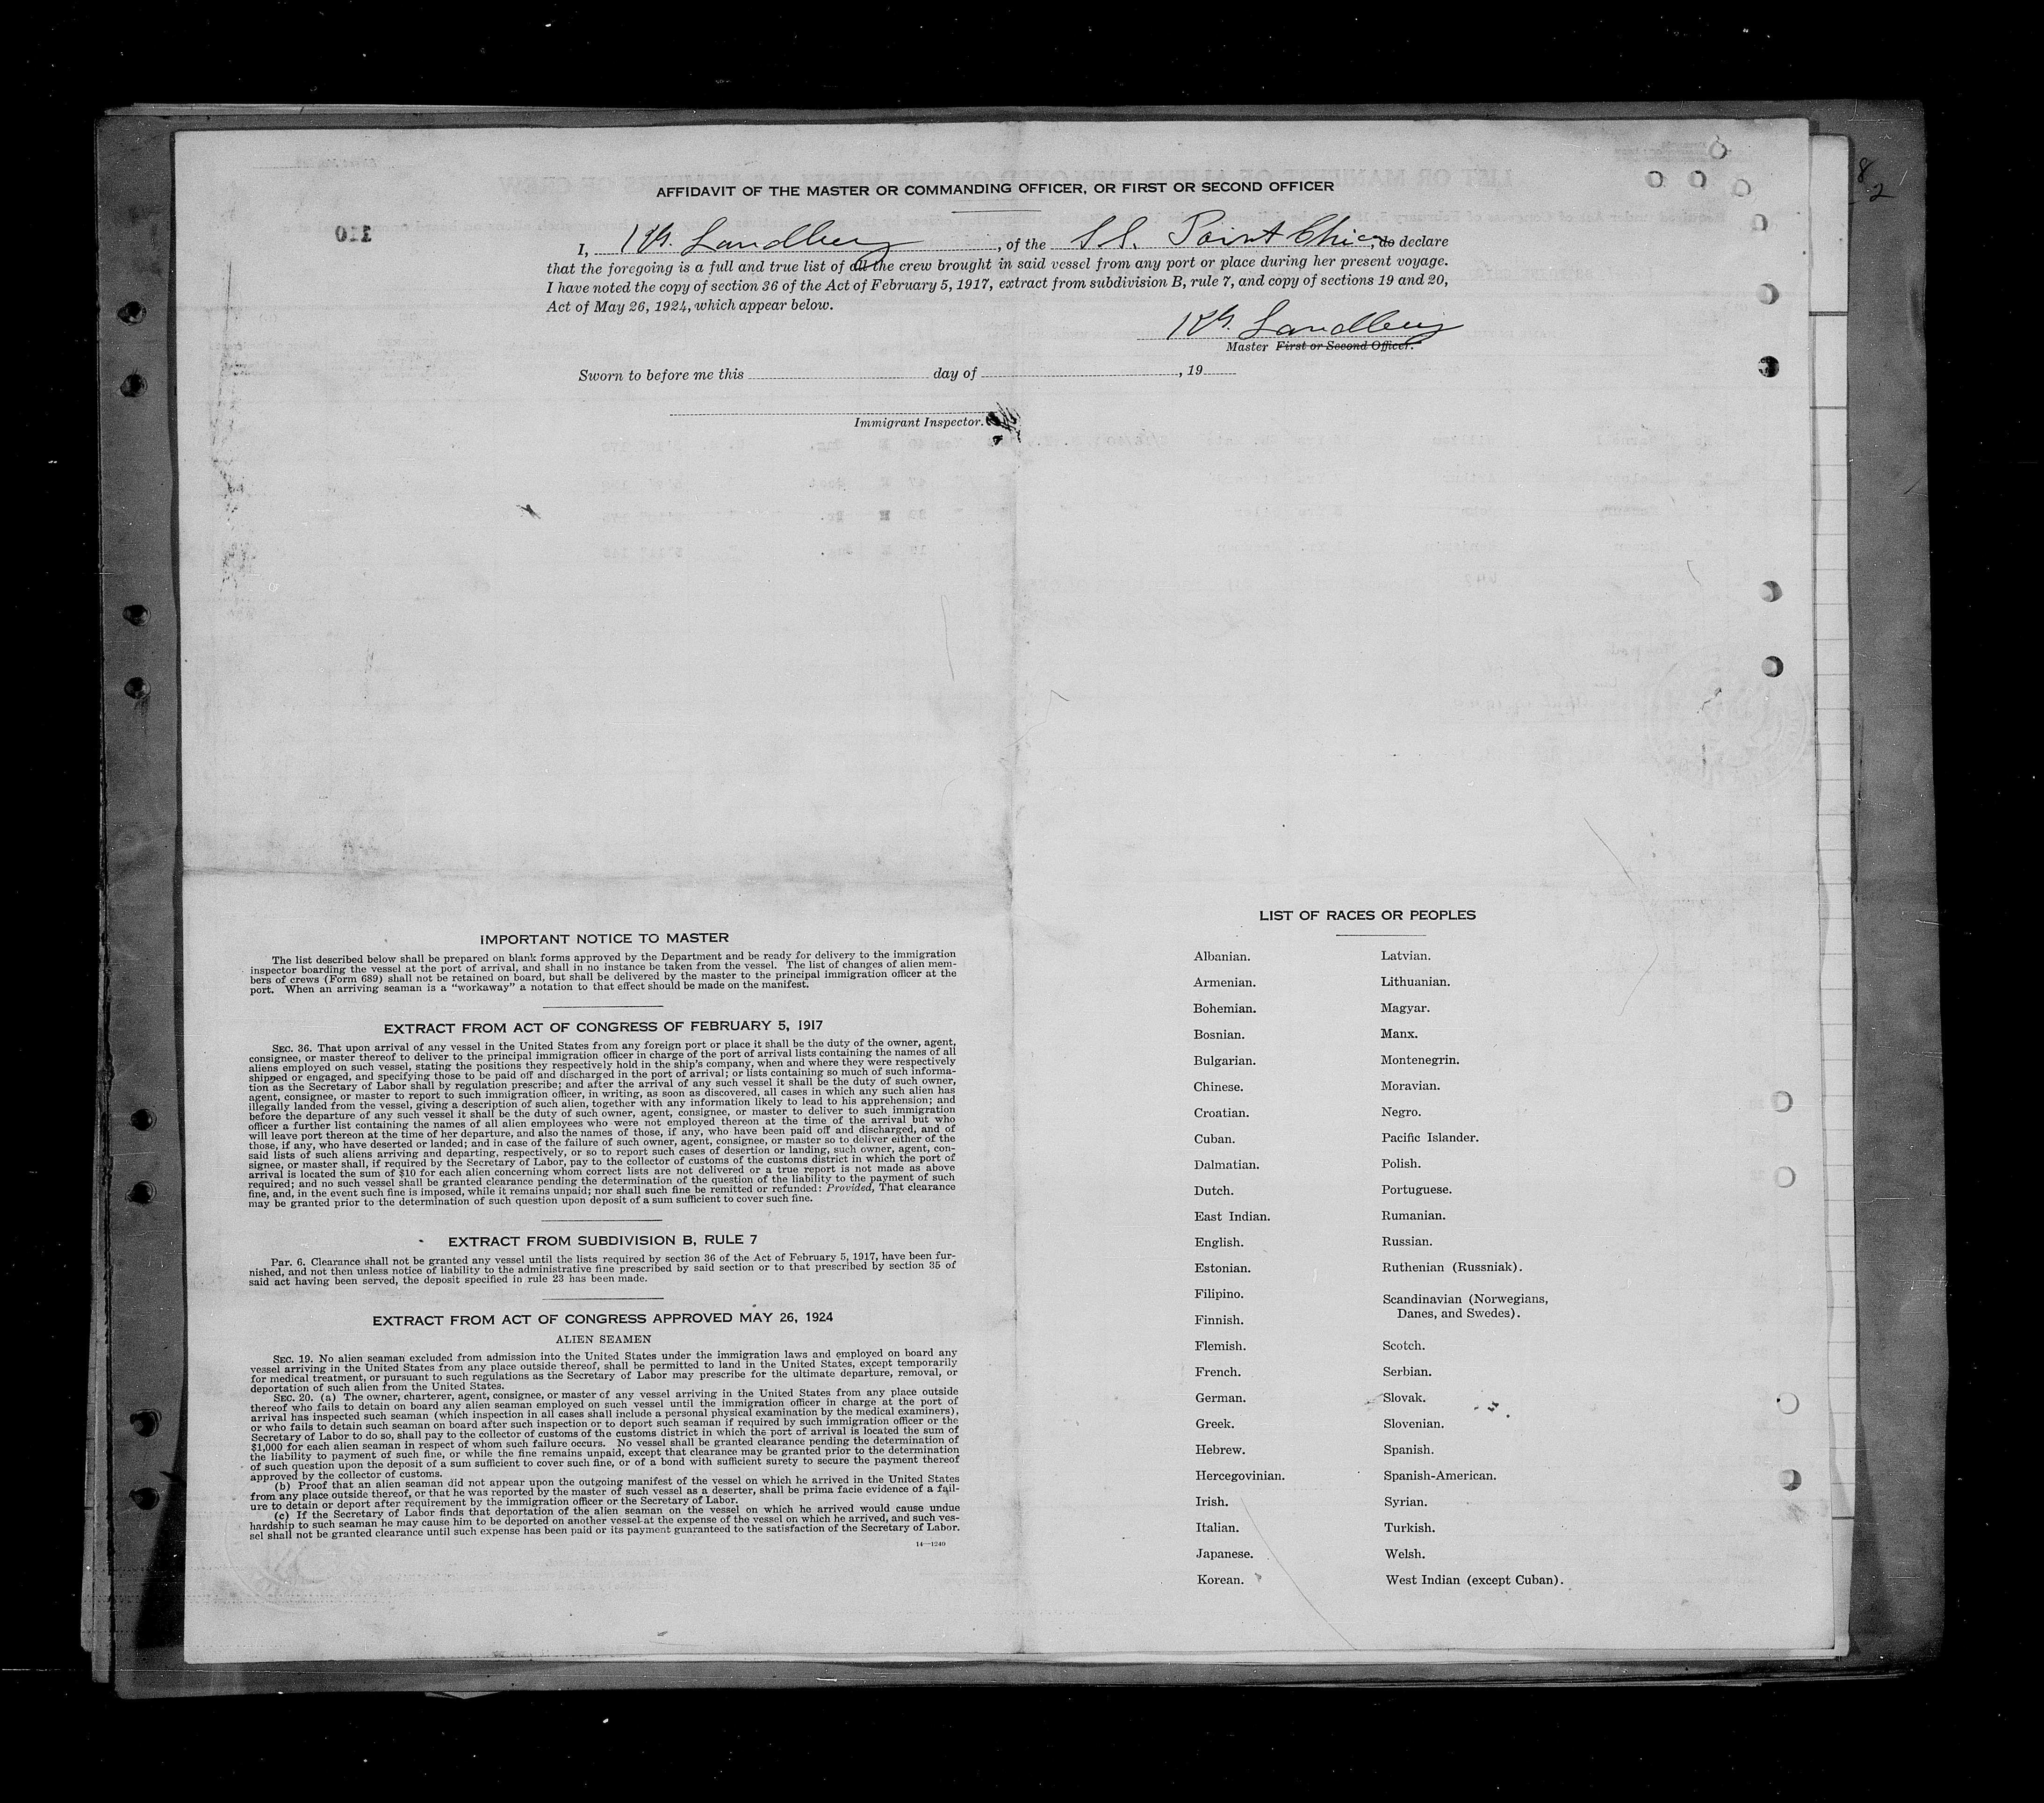 AFFIDAVIT OF THE MASTER OR COMMANDING OFFICER, OR FIRST OR SECOND OFFICER
I, Landberg, of the S.S. Point Chico, do declare
that the foregoing is a full and true list of all the crew brought in said vessel from any port or place during her present voyage.
I have noted the copy of section 36 of the Act of February 5, 1917, extract from subdivision B, rule 7, and copy of sections 19 and 20,
Act of May 26, 1924, which appear below.
Landberg
Master First or Second Officer.
Sworn to before me this day of , 19
Immigrant Inspector.
IMPORTANT NOTICE TO MASTER
The list described below shall be prepared on blank forms approved by the Department and be ready for delivery to the immigration
inspector boarding the vessel at the port of arrival, and shall in no instance be taken from the vessel. The list of changes of alien mem-
bers of crews (Form 689) shall not be retained on board, but shall be delivered by the master to the principal immigration officer at the
port. When an arriving seaman is a "workaway" a notation to that effect should be made on the manifest.
EXTRACT FROM ACT OF CONGRESS OF FEBRUARY 5, 1917
SEC. 36. That upon arrival of any vessel in the United States from any foreign port or place it shall be the duty of the owner, agent,
consignee, or master thereof to deliver to the principal immigration officer in charge of the port of arrival lists containing the names of all
aliens employed on such vessel, stating the positions they respectively hold in the ship's company, when and where they were respectively
shipped or engaged, and specifying those to be paid off and discharged in the port of arrival; or lists containing so much of such informa-
tion as the Secretary of Labor shall by regulation prescribe; and after the arrival of any such vessel it shall be the duty of such owner,
agent, consignee, or master to report to such immigration officer, in writing, as soon as discovered, all cases in which any such alien has
illegally landed from the vessel, giving a description of such alien, together with any information likely to lead to his apprehension; and
before the departure of any such vessel it shall be the duty of such owner, agent, consignee, or master to deliver to such immigration
officer a further list containing the names of all alien employees who were not employed thereon at the time of the arrival but who
will leave port thereon at the time of her departure, and also the names of those, if any, who have been paid off and discharged, and of
those, if any, who have deserted or landed; and in case of the failure of such owner, agent, consignee, or master so to deliver either of the
said lists of such aliens arriving and departing, respectively, or so to report such cases of desertion or landing, such owner, agent, con-
signee, or master shall, if required by the Secretary of Labor, pay to the collector of customs of the customs district in which the port of
arrival is located the sum of $10 for each alien concerning whom correct lists are not delivered or a true report is not made as above
required; and no such vessel shall be granted clearance pending the determination of the question of the liability to the payment of such
fine, and, in the event such fine is imposed, while it remains unpaid; nor shall such fine be remitted or refunded: Provided, That clearance
may be granted prior to the determination of such question upon deposit of a sum sufficient to cover such fine.
EXTRACT FROM SUBDIVISION B, RULE 7
Par. 6. Clearance shall not be granted any vessel until the lists required by section 36 of the Act of February 5, 1917, have been fur-
nished, and not then unless notice of liability to the administrative fine prescribed by said section or to that prescribed by section 35 of
said act having been served, the deposit specified in rule 23 has been made.
EXTRACT FROM ACT OF CONGRESS APPROVED MAY 26, 1924
ALIEN SEAMEN
SEC. 19. No alien seaman excluded from admission into the United States under the immigration laws and employed on board any
vessel arriving in the United States from any place outside thereof, shall be permitted to land in the United States, except temporarily
for medical treatment, or pursuant to such regulations as the Secretary of Labor may prescribe for the ultimate departure, removal, or
deportation of such alien from the United States.
SEC. 20. (a) The owner, charterer, agent, consignee, or master of any vessel arriving in the United States from any place outside
thereof who fails to detain on board any alien seaman employed on such vessel until the immigration officer in charge at the port of
arrival has inspected such seaman (which inspection in all cases shall include a personal physical examination by the medical examiners),
or who fails to detain such seaman on board after such inspection or to deport such seaman if required by such immigration officer or the
Secretary of Labor to do so, shall pay to the collector of customs of the customs district in which the port of arrival is located the sum of
$1,000 for each alien seaman in respect of whom such failure occurs. No vessel shall be granted clearance pending the determination of
the liability to payment of such fine, or while the fine remains unpaid, except that clearance may be granted prior to the determination
of such question upon the deposit of a sum sufficient to cover such fine, or of a bond with sufficient surety to secure the payment thereof
approved by the collector of customs.
(b) Proof that an alien seaman did not appear upon the outgoing manifest of the vessel on which he arrived in the United States
from any place outside thereof, or that he was reported by the master of such vessel as a deserter, shall be prima facie evidence of a fail-
ure to detain or deport after requirement by the immigration officer or the Secretary of Labor.
(c) If the Secretary of Labor finds that deportation of the alien seaman on the vessel on which he arrived would cause undue
hardship to such seaman he may cause him to be deported on another vessel at the expense of the vessel on which he arrived, and such ves-
sel shall not be granted clearance until such expense has been paid or its payment guaranteed to the satisfaction of the Secretary of Labor.
14—1240
LIST OF RACES OR PEOPLES
Albanian.
Armenian.
Bohemian.
Bosnian.
Bulgarian.
Chinese.
Croatian.
Cuban.
Dalmatian.
Dutch.
East Indian.
English.
Estonian.
Filipino.
Finnish.
Flemish.
French.
German.
Greek.
Hebrew.
Hercegovinian.
Irish.
Italian.
Japanese.
Korean.
Latvian.
Lithuanian.
Magyar.
Manx.
Montenegrin.
Moravian.
Negro.
Pacific Islander.
Polish.
Portuguese.
Rumanian.
Russian.
Ruthenian (Russniak).
Scandinavian (Norwegians,
Danes, and Swedes).
Scotch.
Serbian.
Slovak.
Slovenian.
Spanish.
Spanish-American.
Syrian.
Turkish.
Welsh.
West Indian (except Cuban).